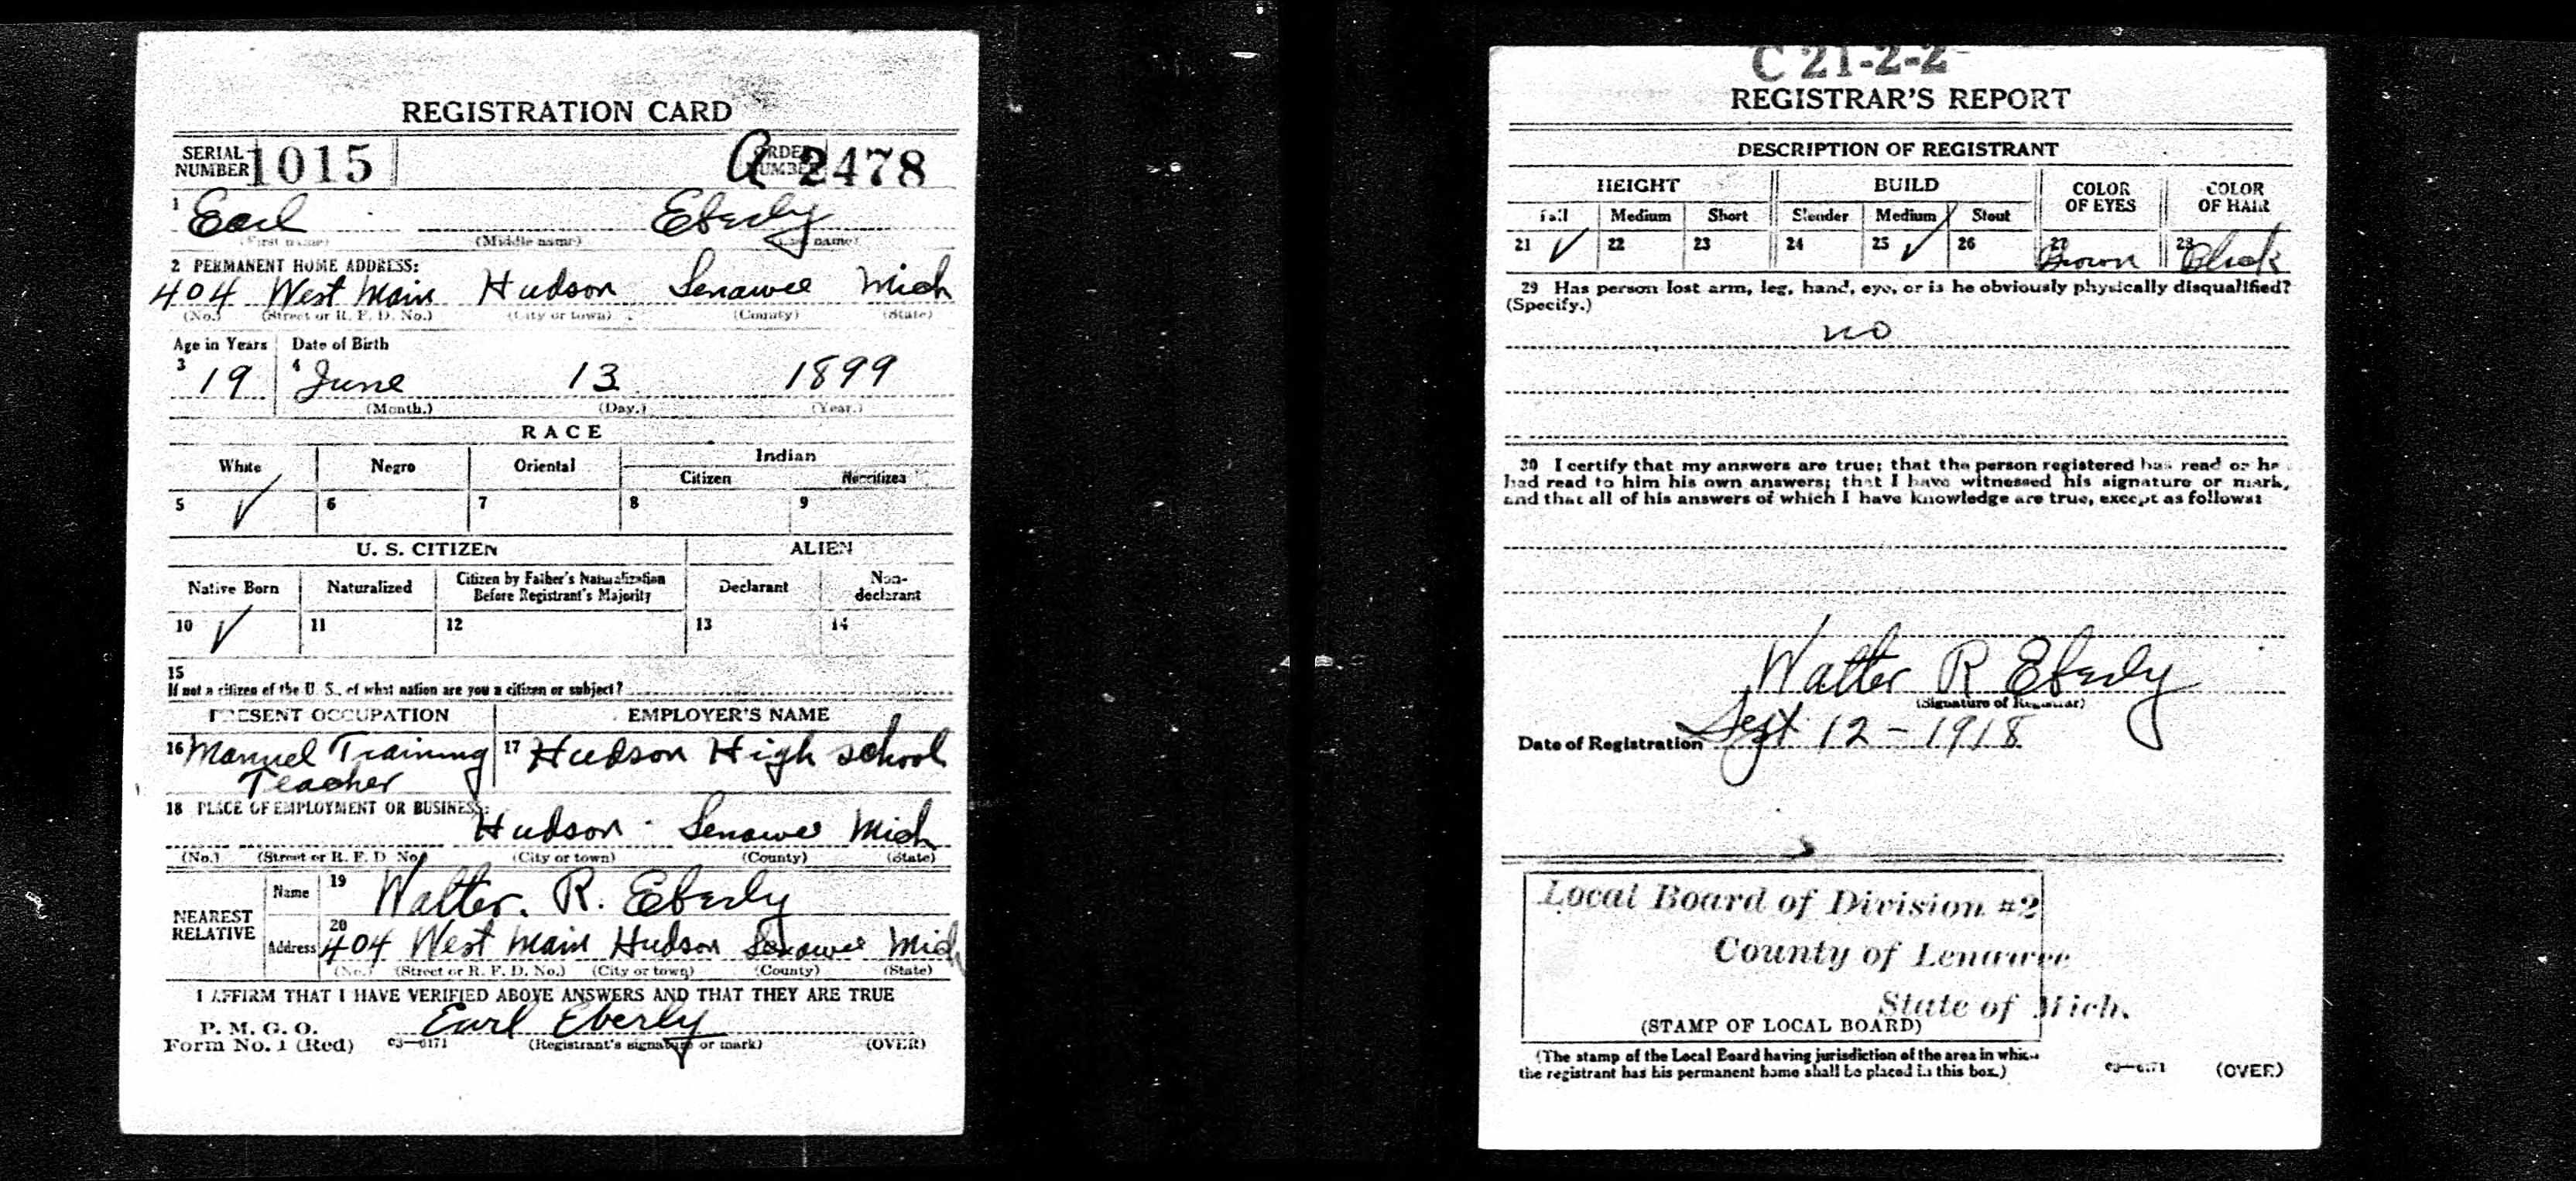 REGISTRATION CARD
SERIAL NUMBER 1015 A ORDER NUMBER 2478
1 Earl Eberly
(First name) (Middle name) (Last name)
2 PERMANENT HOME ADDRESS:
404 West Main Hudson Lenawee Mich
(No.) (Street or R. F. D. No.) (City or town) (County) (State)
Age in Years Date of Birth
3 19 4 June 13 1899
(Month.) (Day.) (Year.)
RACE
White Negro Oriental Indian
Citizen Noncitizen
5 ✓ 6 7 8 9
U. S. CITIZEN ALIEN
Native Born Naturalized Citizen by Father's Naturalization Before Registrant's Majority Declarant Non-declarant
10 ✓ 11 12 13 14
15
If not a citizen of the U. S., of what nation are you a citizen or subject?
PRESENT OCCUPATION EMPLOYER'S NAME
16 Manuel Training Teacher 17 Hudson High school
18 PLACE OF EMPLOYMENT OR BUSINESS:
Hudson - Lenawee Mich
(No.) (Street or R. F. D. No.) (City or town) (County) (State)
NEAREST RELATIVE
Name 19 Walter. R. Eberly
Address 20 404 West Main Hudson Lenawee Mich
(No.) (Street or R. F. D. No.) (City or town) (County) (State)
I AFFIRM THAT I HAVE VERIFIED ABOVE ANSWERS AND THAT THEY ARE TRUE
P. M. G. O.
Form No. 1 (Red) 03—6171 Earl Eberly
(Registrant's signature or mark) (OVER)
C 21-2-2
REGISTRAR'S REPORT
DESCRIPTION OF REGISTRANT
HEIGHT BUILD COLOR OF EYES COLOR OF HAIR
Tall Medium Short Slender Medium Stout
21 ✓ 22 23 24 25 ✓ 26 27 Brown 28 Black
29 Has person lost arm, leg, hand, eye, or is he obviously physically disqualified?
(Specify.)
no
30 I certify that my answers are true; that the person registered has read or has
had read to him his own answers; that I have witnessed his signature or mark,
and that all of his answers of which I have knowledge are true, except as follows:
Walter R Eberly
(Signature of Registrar)
Date of Registration Sept 12 - 1918
Local Board of Division #2
County of Lenawee
State of Mich.
(STAMP OF LOCAL BOARD)
(The stamp of the Local Board having jurisdiction of the area in which
the registrant has his permanent home shall be placed in this box.)
03—6171 (OVER)